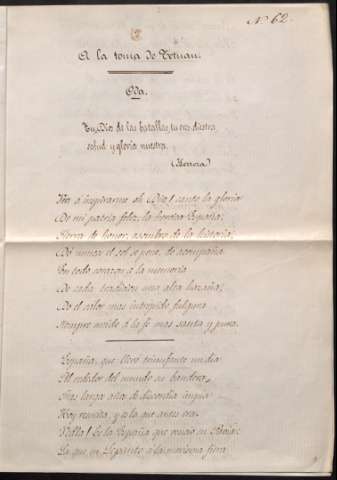 Nº 62.
A la toma de Tetuan.
Oda.
Tu, Dios de las batallas, tu eres diestra,
salud y gloria nuestra.
(Herrera)
Ven a inspirarme oh Dios! canto la gloria
De mi patria feliz, la heroica España,
Tierra de honor, asombro de la historia,
Dó nunca el sol se pone, do acompaña
En todo corazon a la memoria
De cada tradicion una alta hazaña,
Do el valor mas intrepido fulgura
Siempre unido á la fe mas santa y pura.
España, que llevó triunfante un dia
Al rededor del mundo su bandera,
Tras largos años de discordia impia
Hoy resucita, y es la que antes era.
Vedla! Es la España que venció en Pavia;
La que en Lepanto, a la morisma fiera